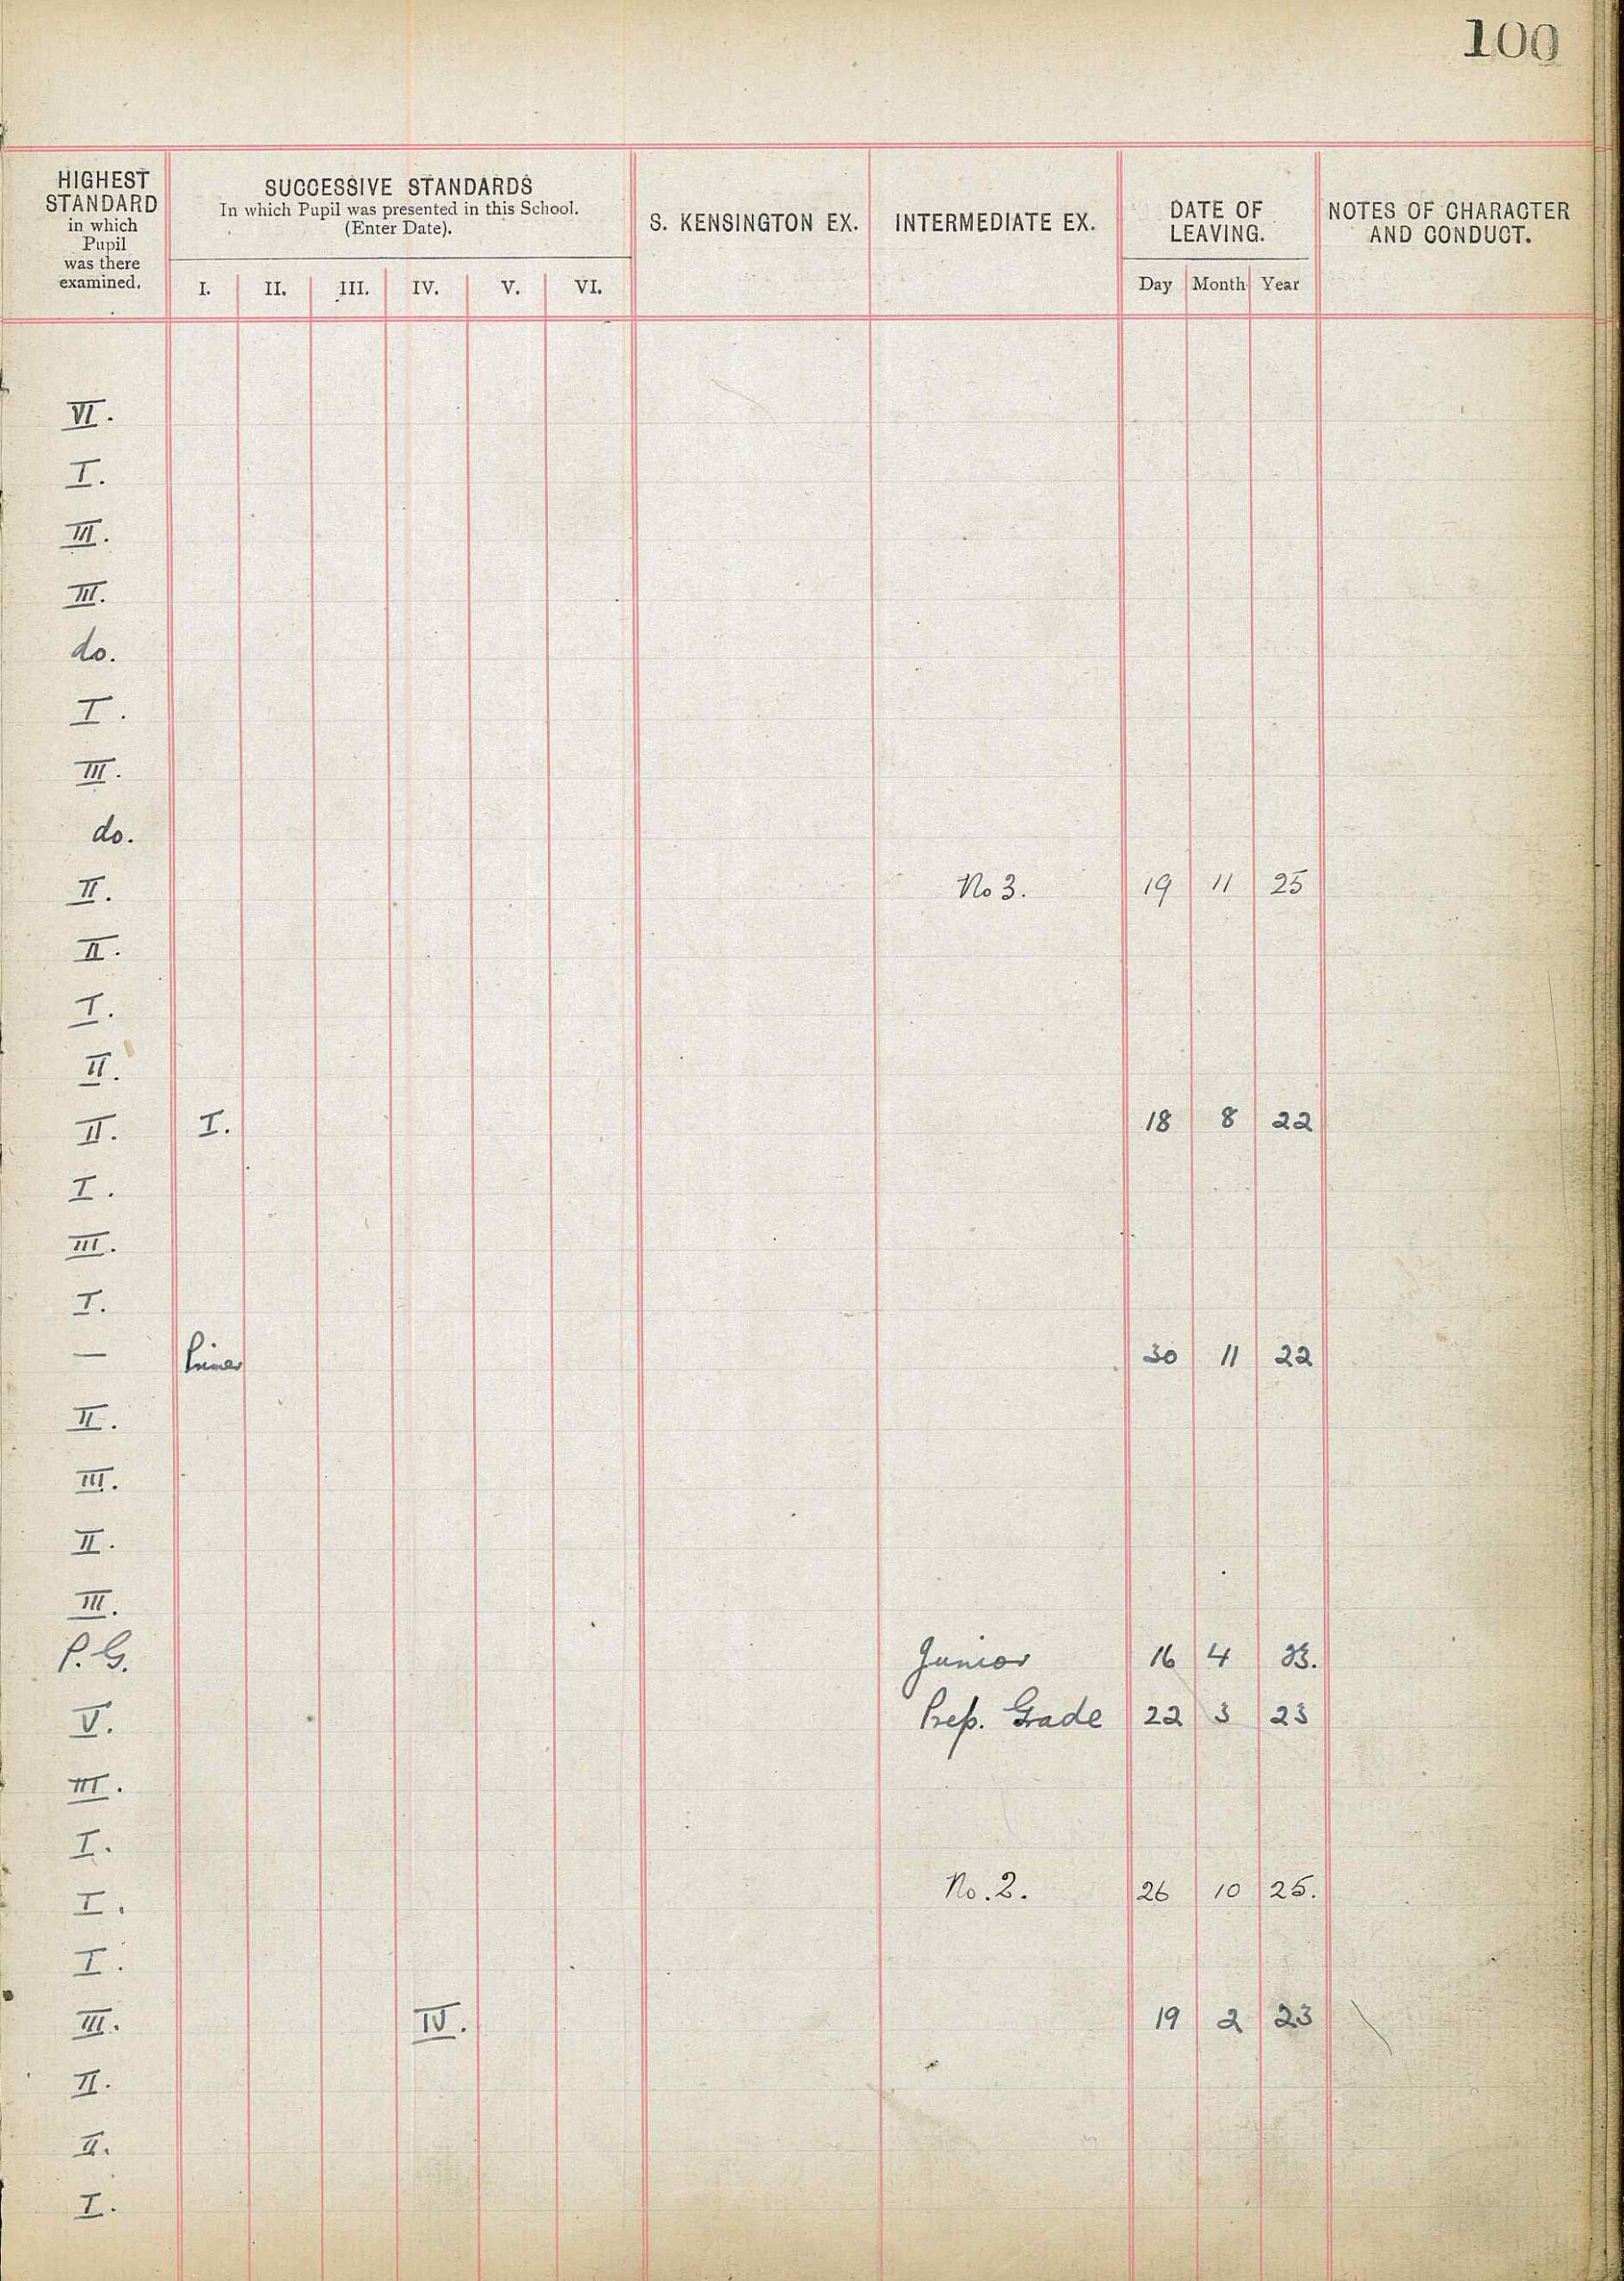 100
HIGHEST STANDARD in which Pupil was there examined.
SUCCESSIVE STANDARDS
In which Pupil was presented in this School.
(Enter Date).
I. II. III. IV. V. VI.
S. KENSINGTON EX.
INTERMEDIATE EX.
DATE OF LEAVING.
Day Month Year
NOTES OF CHARACTER AND CONDUCT.
VI.
I.
III.
III.
do.
I.
III.
do.
II. No 3. 19 11 25
II.
I.
II.
II. I. 18 8 22
I.
III.
I.
— Primer 30 11 22
II.
III.
II.
III.
P.G. Junior 16 4
V. Prep. Grade 22 3 23
III.
I.
I. No. 2. 26 10 25.
I.
III. IV. 19 2 23
II.
II.
I.